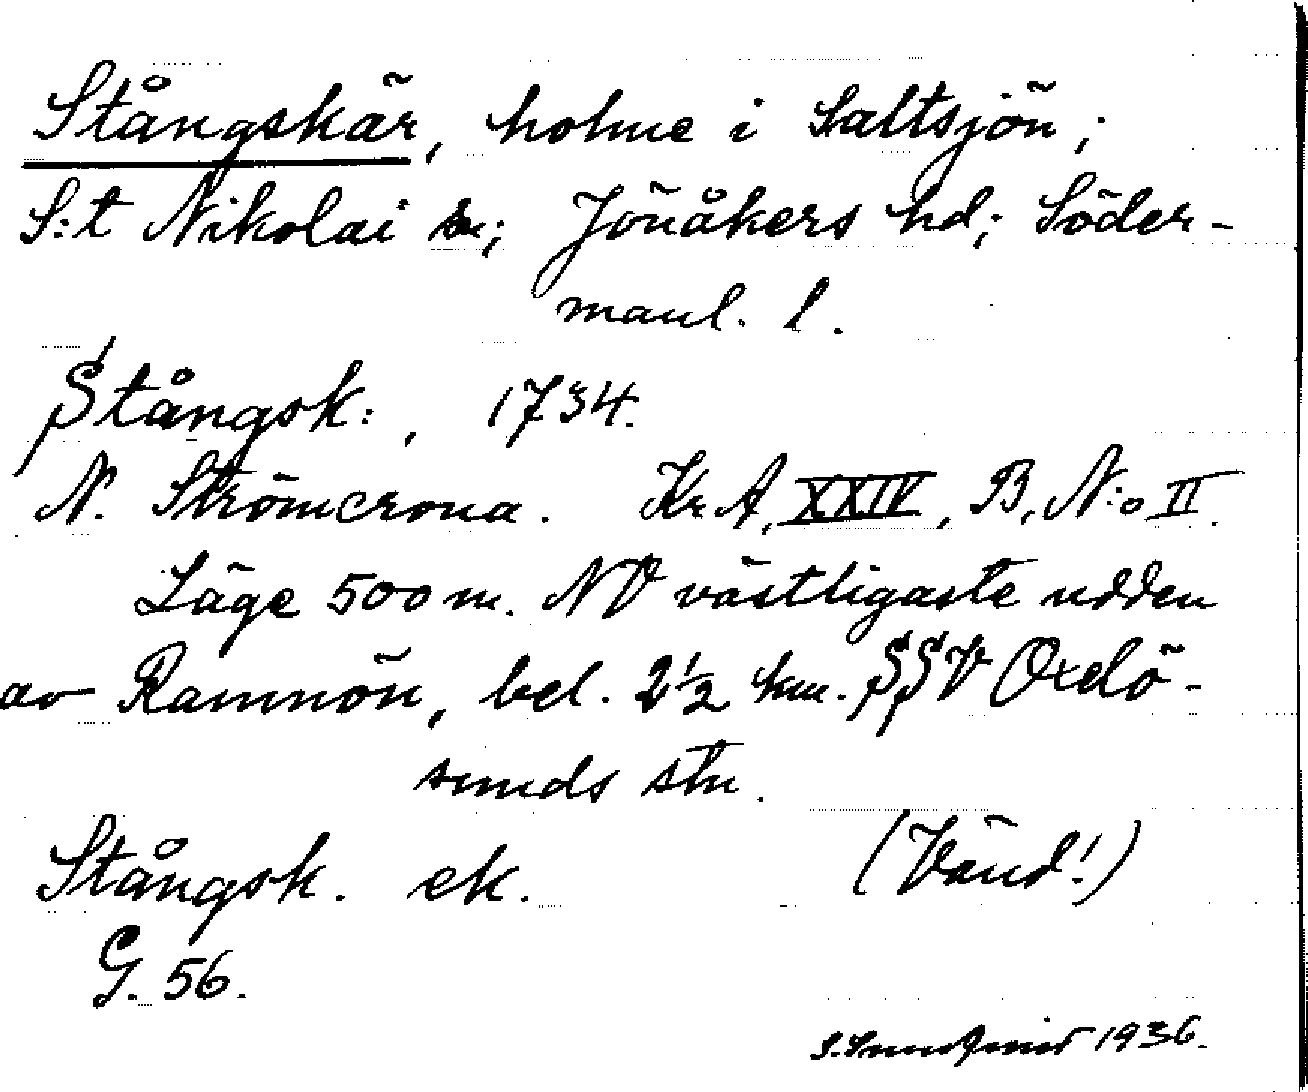 Stångskär, holme i Saltsjön;
S:t Nikolai sn; Jönåkers hd; Söder-
manl. l.
Stångsk:, 1734.
N. Strömcrona. Kr.A, XXIV, B, N:o II.
Läge 500 m. NV västligaste udden
av Ramnön, bel. 2½ km. SSV Oxelö-
sunds stn.
Stångsk. ek. (Vänd!)
G. 56.
1936.